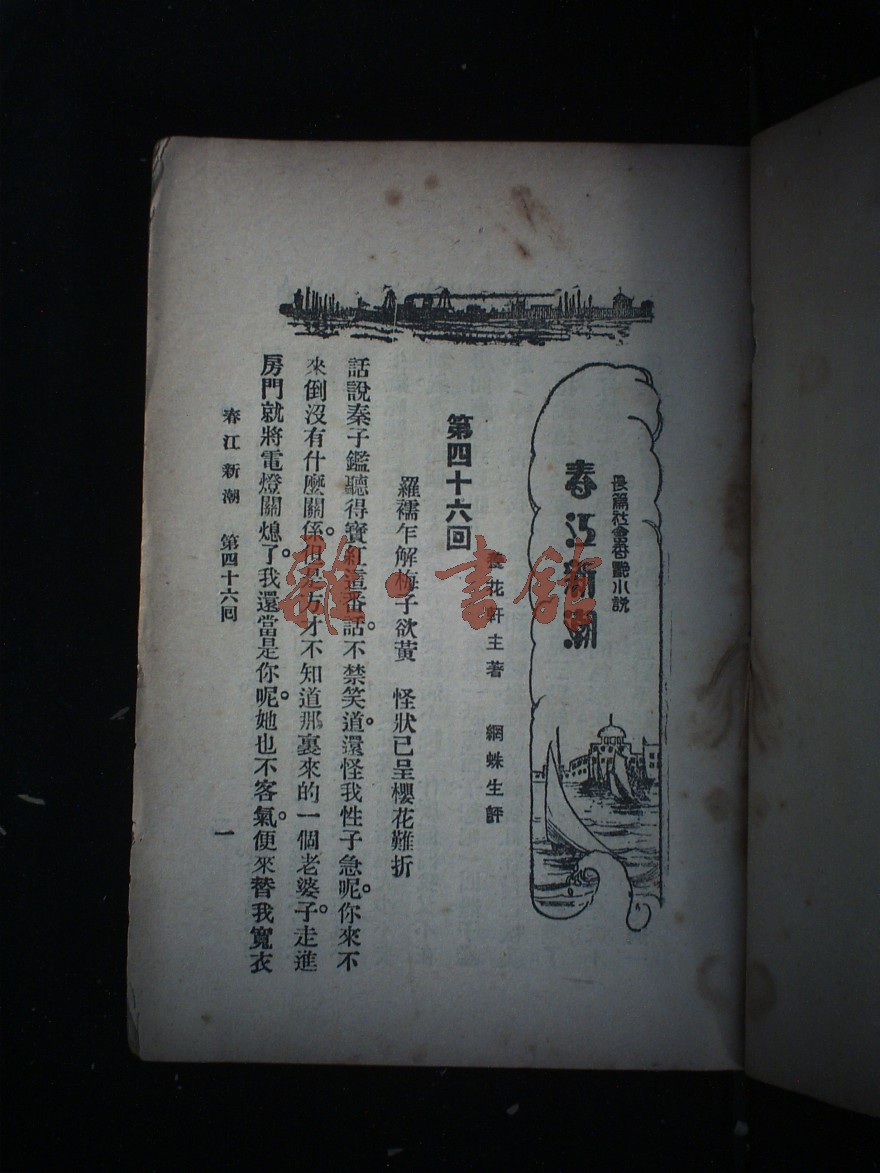 長篇社會香艷小說
春江新潮
養花軒主著　網蛛生評
第四十六回
羅襦乍解梅子欲黃　怪狀已呈櫻花難折
話說秦子鑑聽得寶紅這番話。不禁笑道。還怪我性子急呢。你來不
來倒沒有什麼關係。但是方才不知道那裏來的一個老婆子。走進
房門就將電燈關熄了。我還當是你呢。她也不客氣。便來替我寬衣
春江新潮　第四十六回
一
雜·書館